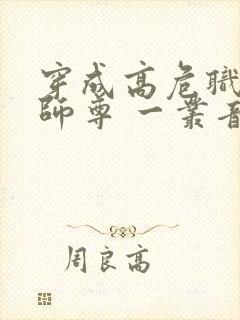 穿成高危職
師尊 一叢音
周良高